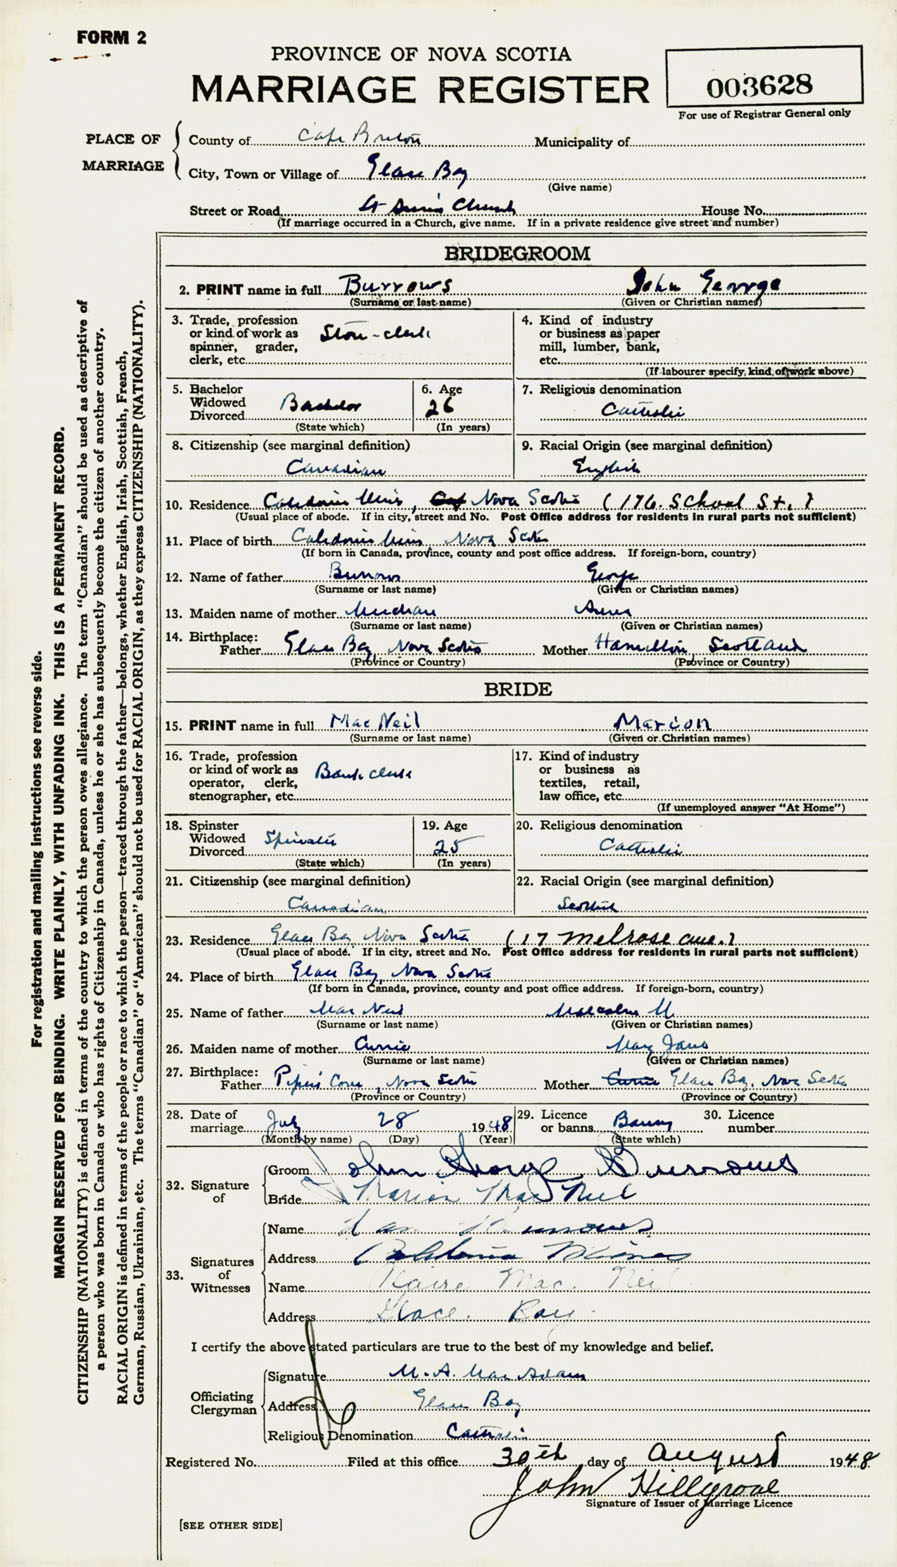 FORM 2
PROVINCE OF NOVA SCOTIA
MARRIAGE REGISTER
003628
For use of Registrar General only
PLACE OF MARRIAGE
County of Cape Breton Municipality of
City, Town or Village of Glace Bay
(Give name)
Street or Road St Ann's Church House No.
(If marriage occurred in a Church, give name. If in a private residence give street and number)
BRIDEGROOM
2. PRINT name in full Burrows John George
(Surname or last name) (Given or Christian names)
3. Trade, profession or kind of work as spinner, grader, clerk, etc. Store-clerk
4. Kind of industry or business as paper mill, lumber, bank, etc.
(If labourer specify, kind of work above)
5. Bachelor Widowed Divorced Bachelor
(State which)
6. Age 26
(In years)
7. Religious denomination Catholic
8. Citizenship (see marginal definition) Canadian
9. Racial Origin (see marginal definition) English
10. Residence Caledonia Mines, Nova Scotia (176 School St.)
(Usual place of abode. If in city, street and No. Post Office address for residents in rural parts not sufficient)
11. Place of birth Caledonia Mines Nova Scotia
(If born in Canada, province, county and post office address. If foreign-born, country)
12. Name of father Burrows George
(Surname or last name) (Given or Christian names)
13. Maiden name of mother Annie
(Surname or last name) (Given or Christian names)
14. Birthplace: Father Glace Bay, Nova Scotia Mother Hamilton, Scotland
(Province or Country) (Province or Country)
BRIDE
15. PRINT name in full MacNeil Marion
(Surname or last name) (Given or Christian names)
16. Trade, profession or kind of work as operator, clerk, stenographer, etc. Bank clerk
17. Kind of industry or business as textiles, retail, law office, etc.
(If unemployed answer "At Home")
18. Spinster Widowed Divorced Spinster
(State which)
19. Age 25
(In years)
20. Religious denomination Catholic
21. Citizenship (see marginal definition) Canadian
22. Racial Origin (see marginal definition) Scottish
23. Residence Glace Bay, Nova Scotia (17 Melrose Ave.)
(Usual place of abode. If in city, street and No. Post Office address for residents in rural parts not sufficient)
24. Place of birth Glace Bay, Nova Scotia
(If born in Canada, province, county and post office address. If foreign-born, country)
25. Name of father MacNeil Malcolm M
(Surname or last name) (Given or Christian names)
26. Maiden name of mother Currie Mary Jane
(Surname or last name) (Given or Christian names)
27. Birthplace: Father Piper's Cove, Nova Scotia Mother Currie Glace Bay, Nova Scotia
(Province or Country) (Province or Country)
28. Date of marriage July 28 1948
(Month by name) (Day) (Year)
29. Licence or banns Banns
(State which)
30. Licence number
32. Signature of
Groom John George Burrows
Bride Marion MacNeil
33. Signatures of Witnesses
Name Burrows
Address Caledonia Mines
Name Claire Mac. Neil
Address Glace Bay
I certify the above stated particulars are true to the best of my knowledge and belief.
Officiating Clergyman
Signature M. A. MacAdam
Address Glace Bay
Religious Denomination Catholic
Registered No. Filed at this office 30th day of August 1948
John Hillgrove
Signature of Issuer of Marriage Licence
[SEE OTHER SIDE]
For registration and mailing instructions see reverse side.
MARGIN RESERVED FOR BINDING. WRITE PLAINLY, WITH UNFADING INK. THIS IS A PERMANENT RECORD.
CITIZENSHIP (NATIONALITY) is defined in terms of the country to which the person owes allegiance. The term "Canadian" should be used as descriptive of
a person who was born in Canada or who has rights of Citizenship in Canada, unless he or she has subsequently become the citizen of another country.
RACIAL ORIGIN is defined in terms of the people or race to which the person—traced through the father—belongs, whether English, Irish, Scottish, French,
German, Russian, Ukrainian, etc. The terms "Canadian" or "American" should not be used for RACIAL ORIGIN, as they express CITIZENSHIP (NATIONALITY).